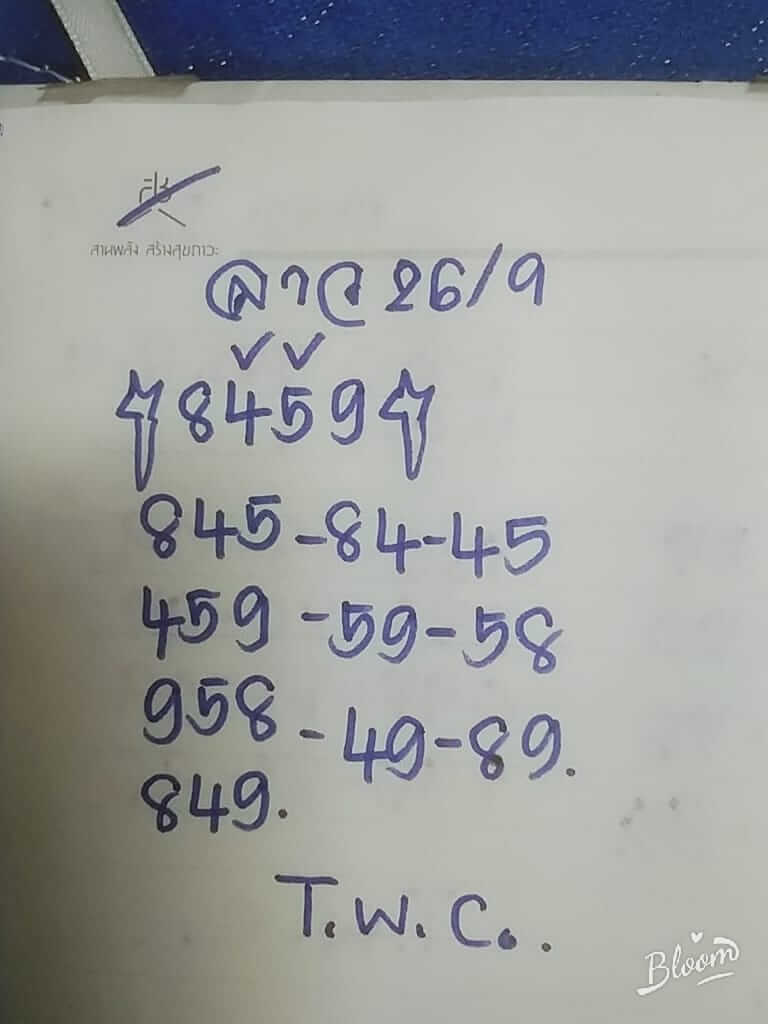 สานพลัง สร้างสุขภาวะ
ลาว 26/9
8459
845-84-45
459-59-58
958-49-89.
849.
T.W.C..
Bloom